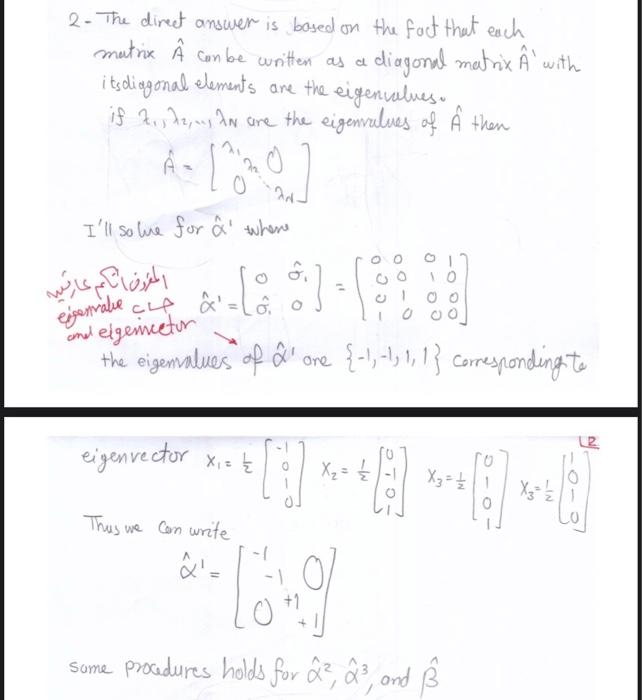 2- The direct answer is based on the fact that each
matrix Â can be written as a diagonal matrix Â' with
its diagonal elements are the eigenvalues.
if λ₁, λ₂, ..., λN are the eigenvalues of Â then
Â = [λ₁ λ₂ 0 0 λN]
I'll solve for α̂' where
eigenvalue حساب
and eigenvector
α̂' = [0 σ̂₁ σ̂₁ 0] = [0 0 0 1 0 0 1 0 0 1 0 0 1 0 0 0]
the eigenvalues of α̂' are {-1,-1,1,1} corresponding to
L2
eigenvector X₁ = 1/2 [-1 0 1 0] X₂ = 1/2 [0 -1 0 1] X₃ = 1/2 [0 1 0 1] X₃ = 1/2 [1 0 1 0]
Thus we can write
α̂' = [-1 -1 0 0 +1 +1]
same procedures holds for α̂², α̂³, and β̂